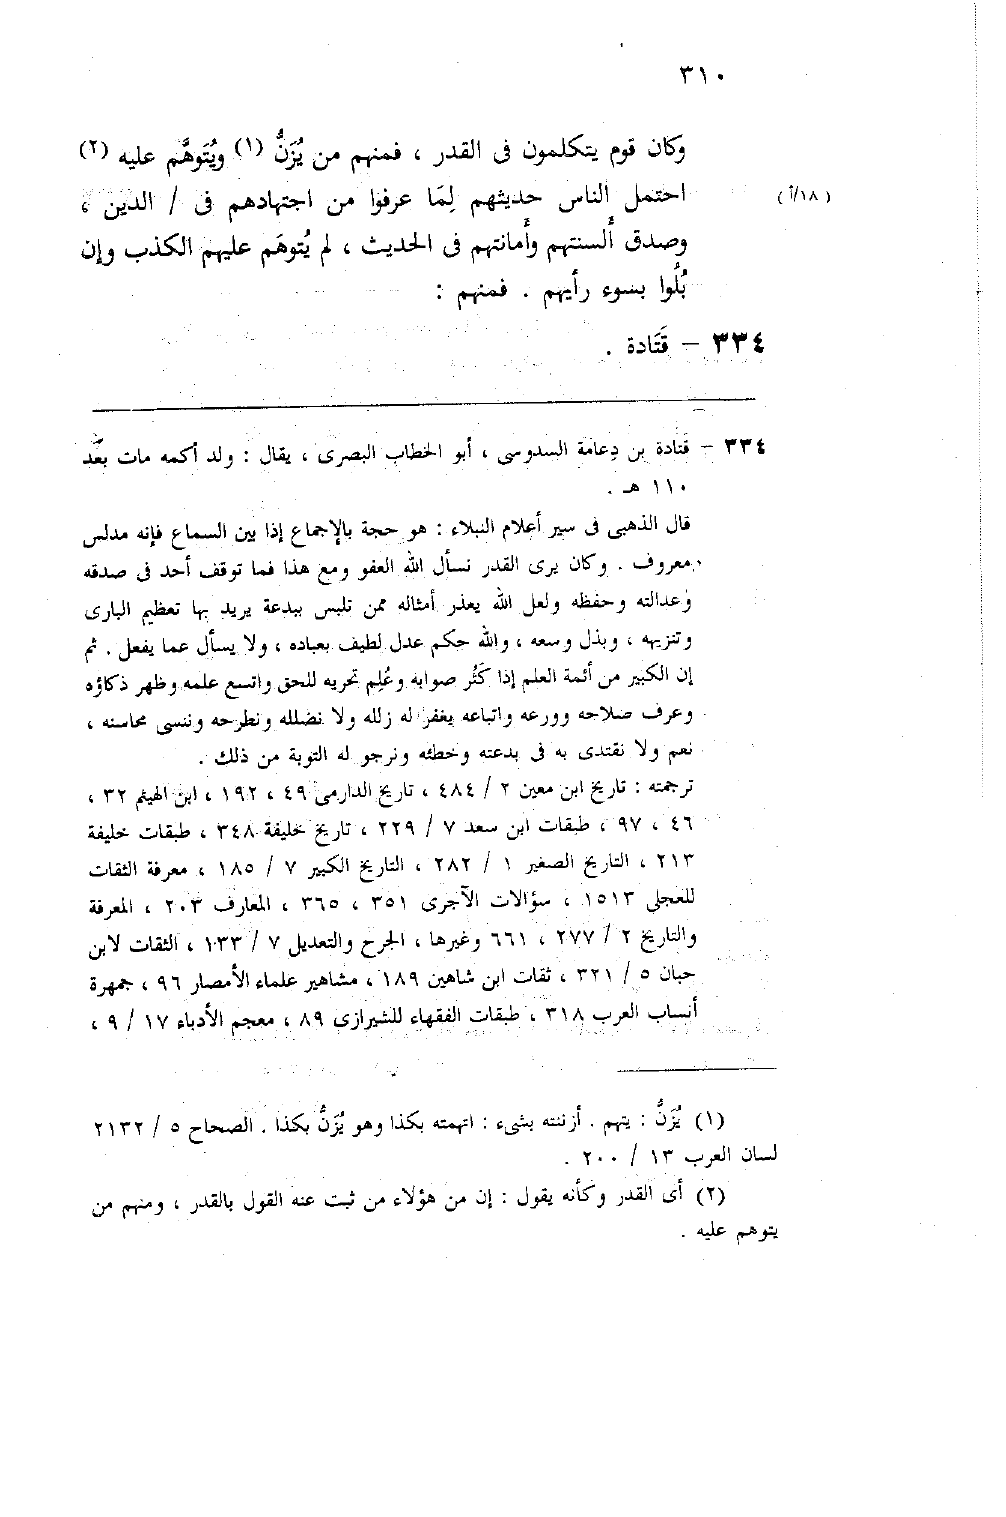 ٣١٠
وكان قوم يتكلمون فى القدر ، فمنهم من يُزَنُّ (١) ويُتَوهَّم عليه (٢)
احتمل الناس حديثهم لِمَا عرفوا من اجتهادهم فى / الدين ، (١٨/أ)
وصدق ألسنتهم وأمانتهم فى الحديث ، لم يُتوهَم عليهم الكذب وإن
بُلُّوا بسوء رأيهم . فمنهم :
٣٣٤ – قَتَادة .
٣٣٤ – قَتادة بن دِعامة السدوسى ، أبو الخطاب البصرى ، يقال : ولد أكمه مات بعْد
١١٠ هـ .
قال الذهبى فى سير أعلام النبلاء : هو حجة بالإجماع إذا بين السماع فإنه مدلس
معروف . وكان يرى القدر نسأل الله العفو ومع هذا فما توقف أحد فى صدقه
وعدالته وحفظه ولعل الله يعذر أمثاله ممن تلبس ببدعة يريد بها تعظيم البارى
وتنزيهه ، وبذل وسعه ، والله حكم عدل لطيف بعباده ، ولا يسأل عما يفعل . ثم
إن الكبير من أئمة العلم إذا كَثُر صوابه وعُلِم تحريه للحق واتسع علمه وظهر ذكاؤه
وعرف صلاحه وورعه واتباعه يغفر له زلله ولا نضلله ونطرحه وننسى محاسنه ،
نعم ولا نقتدى به فى بدعته وخطئه ونرجو له التوبة من ذلك .
ترجمته : تاريخ ابن معين ٢ / ٤٨٤ ، تاريخ الدارمى ٤٩ ، ١٩٢ ، ابن الهيثم ٣٢ ،
٤٦ ، ٩٧ ، طبقات ابن سعد ٧ / ٢٢٩ ، تاريخ خليفة ٣٤٨ ، طبقات خليفة
٢١٣ ، التاريخ الصغير ١ / ٢٨٢ ، التاريخ الكبير ٧ / ١٨٥ ، معرفة الثقات
للعجلى ١٥١٣ ، سؤالات الآجرى ٣٥١ ، ٣٦٥ ، المعارف ٢٠٣ ، المعرفة
والتاريخ ٢ / ٢٧٧ ، ٦٦١ وغيرها ، الجرح والتعديل ٧ / ١٣٣ ، الثقات لابن
حبان ٥ / ٣٢١ ، ثقات ابن شاهين ١٨٩ ، مشاهير علماء الأمصار ٩٦ ، جمهرة
أنساب العرب ٣١٨ ، طبقات الفقهاء للشيرازى ٨٩ ، معجم الأدباء ١٧ / ٩ ،
(١) يُزَنُّ : يتهم . أزننته بشىء : اتهمته بكذا وهو يُزَنُّ بكذا . الصحاح ٥ / ٢١٣٢
لسان العرب ١٣ / ٢٠٠ .
(٢) أى القدر وكأنه يقول : إن من هؤلاء من ثبت عنه القول بالقدر ، ومنهم من
يتوهم عليه .